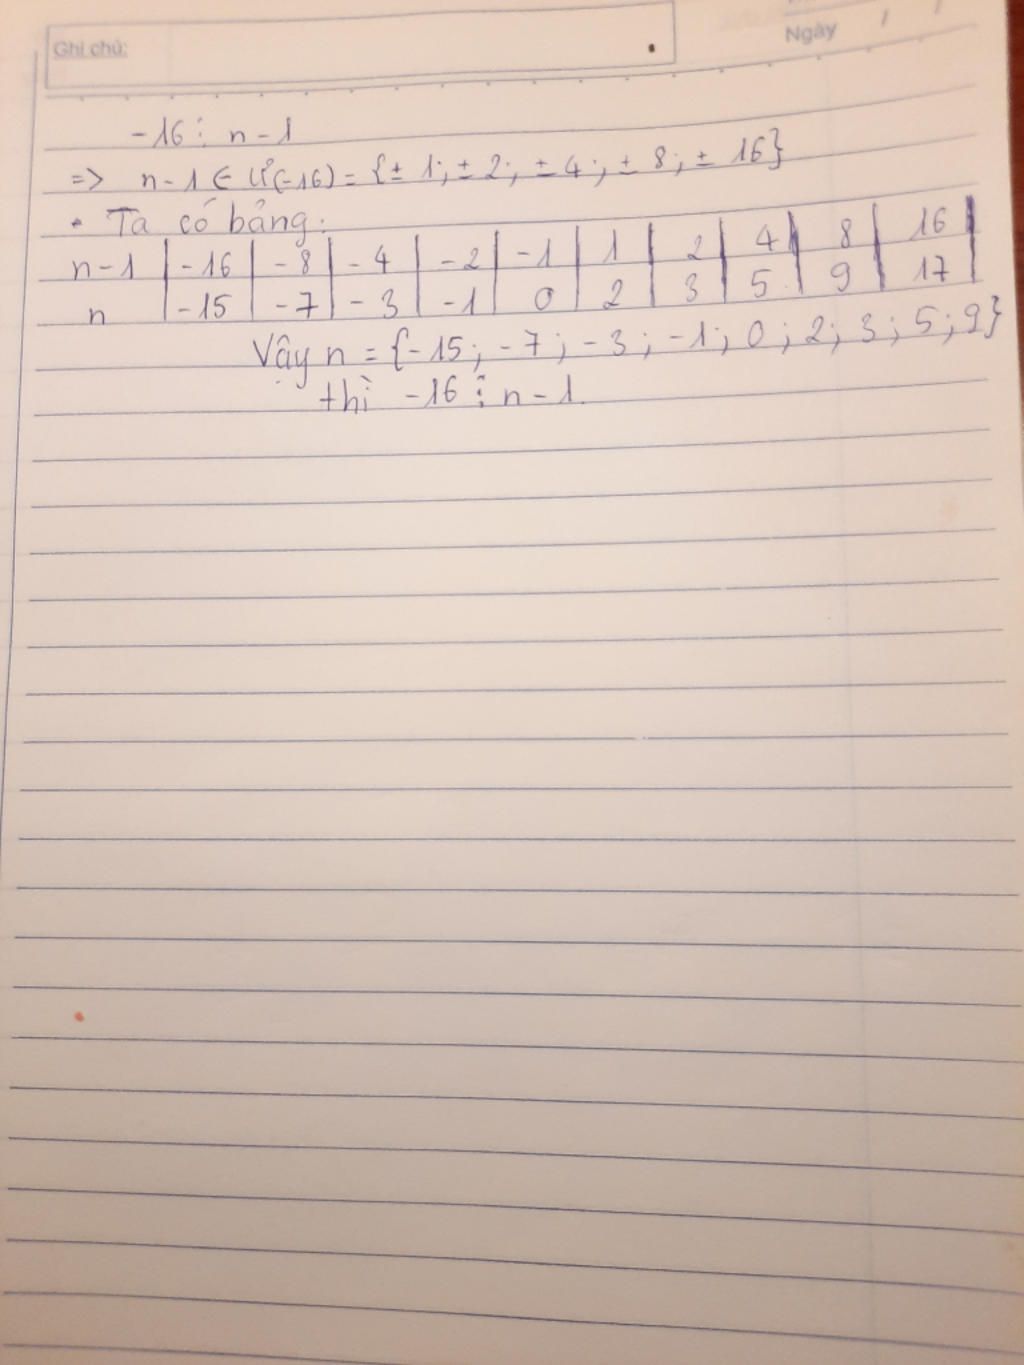 Ghi chú:
Ngày / /
-16 ⋮ n - 1
=> n - 1 ∈ Ư(-16) = {± 1; ± 2; ± 4; ± 8; ± 16}
• Ta có bảng:
n-1 | -16 | -8 | -4 | -2 | -1 | 1 | 2 | 4 | 8 | 16
n | -15 | -7 | -3 | -1 | 0 | 2 | 3 | 5 | 9 | 17
Vậy n = {-15; -7; -3; -1; 0; 2; 3; 5; 9}
thì -16 ⋮ n - 1.